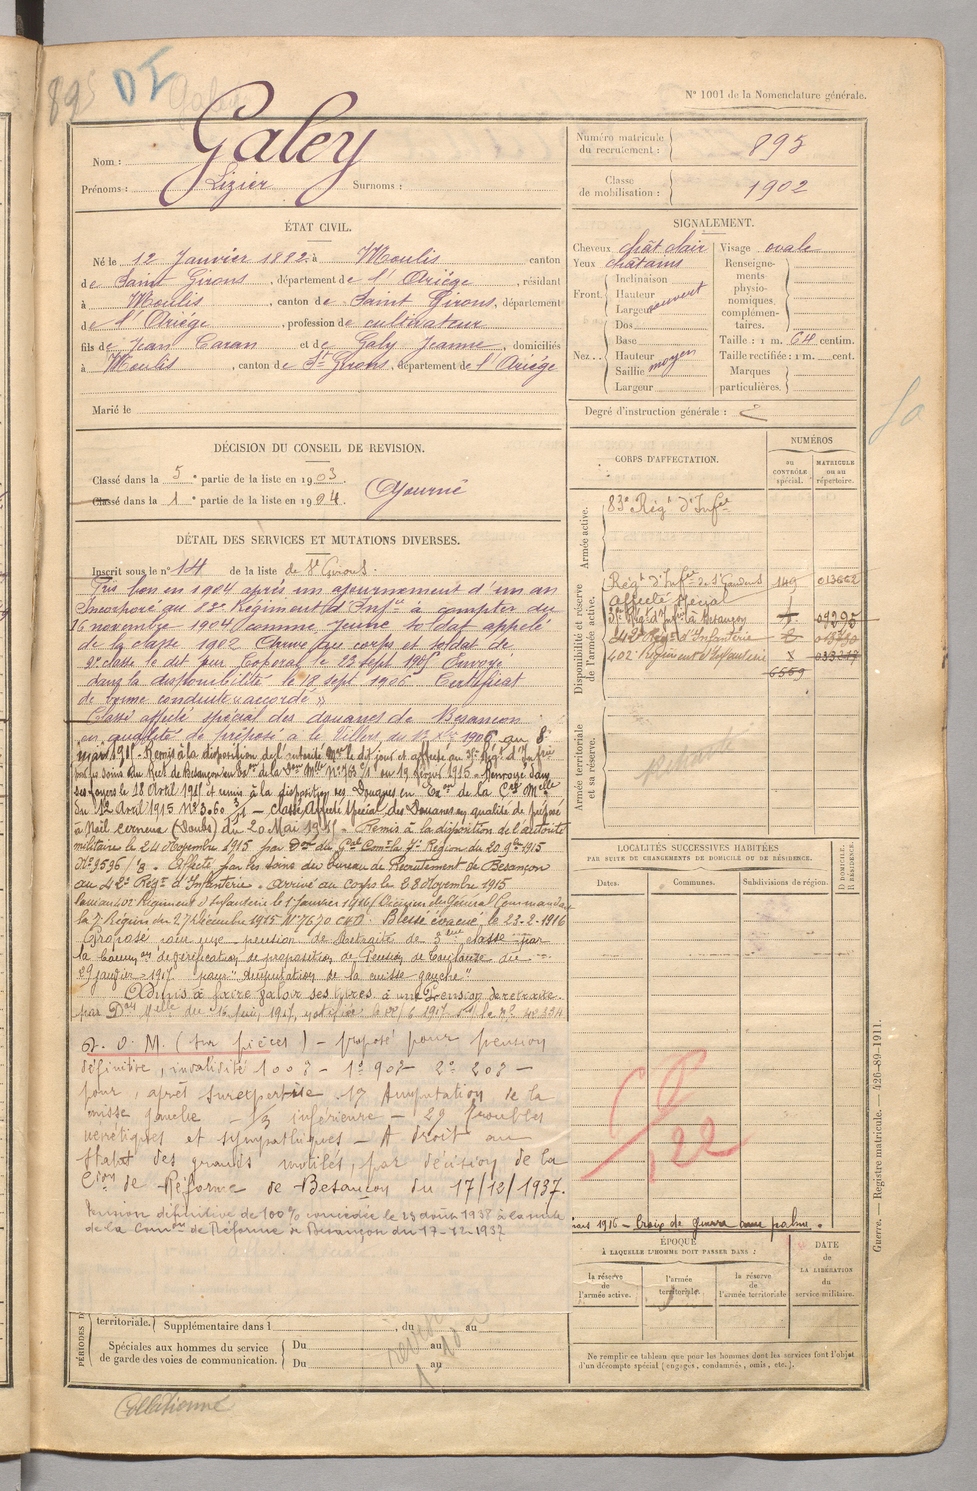 895
N° 1001 de la Nomenclature générale.
Nom : Galey
Prénoms : Lizier Surnoms :
Numéro matricule du recrutement : 895
Classe de mobilisation : 1902
ÉTAT CIVIL.
Né le 12 Janvier 1882 à Moulis canton
de Saint Girons, département de l'Ariége, résidant
à Moulis, canton de Saint Girons, département
de l'Ariége, profession de cultivateur
fils de Jean Caran et de Galy Jeanne, domiciliés
à Moulis, canton de St Girons, département de l'Ariége
Marié le
SIGNALEMENT.
Cheveux chât clair
Yeux chatains
Front. Inclinaison
Hauteur
Largeur
Dos
Nez... Base
Hauteur
Saillie moyen
Largeur
Visage ovale
Renseignements physionomiques complémentaires.
Taille : 1 m. 64 centim.
Taille rectifiée : 1 m. cent.
Marques particulières.
Degré d'instruction générale :
DÉCISION DU CONSEIL DE REVISION.
Classé dans la 5e partie de la liste en 1903
Classé dans la 1e partie de la liste en 1904. Ajourné
DÉTAIL DES SERVICES ET MUTATIONS DIVERSES.
Inscrit sous le n° 14 de la liste de St Girons.
Pris bon en 1904 après un ajournement d'un an
Incorporé au 83e Régiment d'Infie à compter du
16 novembre 1904 comme jeune soldat appelé
de la classe 1902 Arrivé au corps et soldat de
2e classe le dit jour Caporal le 22 sept 1905 Envoyé
dans la disponibilité le 18 sept 1906 Certificat
de bonne conduite "accordé"
Classé affecté spécial des douanes de Besançon
en qualité de préposé à le Villers, du 1906 au 8
mars 1915. Remis à la disposition de l'autorité Mre le dit jour et affecté au Régt d'Infie
par les soins du Rect de Besançon en Don de la Don Melle N° du 19 février 1915. Renvoyé dans
ses foyers le 18 Avril 1915 et remis à la disposition des Douanes en Don de la Cre Melle
du 12 Avril 1915 N° 3.060 — classé Affecté Spécial des Douanes en qualité de préposé
à Noël Cerneux (Doubs) du 20 Mai 1915. Remis à la disposition de l'autorité
militaire le 24 Novembre 1915 par Don du Gral Comt la 7e Région du 20 9bre 1915
N° 9596. Affecté par les soins du bureau de Recrutement de Besançon
au 42e Régt d'Infanterie. arrivé au corps le 28 Novembre 1915
Passé au 402e Régiment d'Infanterie le 1 Janvier 1916 Décision du Général Commandant
la 7e Région du 27 Décembre 1915 N° 7670. Blessé évacué le 23-2-1916
Proposé pour une pension de Retraite de 3eme classe par
la Common de vérification de proposition de Pension de Toulouse du
29 janvier 1917 pour "amputation de la cuisse gauche"
Admis à faire valoir ses titres à une Pension de retraite.
par Don Melle du 1917, notifiée le
(sur pièces) — proposé pour pension
définitive, invalidité 100% — 1° 90% 2° 20% —
pour, après surexpertise 1° Amputation de la
cuisse gauche — 1/3 inférieure — 2° Troubles
névritiques et sympathiques — A droit au
Statut des grands mutilés, par décision de la
Con de Réforme de Besançon du 17/12/1937.
Pension définitive de 100% concédée le 23 août 1938 à la suite
de la Comon de Réforme de Besançon du 17-12-1937
CORPS D'AFFECTATION.
NUMÉROS
au CONTRÔLE spécial.
MATRICULE ou au répertoire.
Armée active.
83e Régt d'Infie
Disponibilité et réserve de l'armée active.
Régt d'Infie de St Gaudens 149 013662
affecté spécial
Régt d'Infie à Besançon 09295
42e Régt d'Infanterie
402e Régiment d'Infanterie X
6559
Armée territoriale et sa réserve.
LOCALITÉS SUCCESSIVES HABITÉES
PAR SUITE DE CHANGEMENTS DE DOMICILE OU DE RÉSIDENCE.
Dates. Communes. Subdivisions de région. D DOMICILE. R RÉSIDENCE.
22
mars 1916 — Croix de guerre avec palme.
ÉPOQUE
À LAQUELLE L'HOMME DOIT PASSER DANS :
la réserve de l'armée active.
l'armée territoriale.
la réserve de l'armée territoriale
DATE de LA LIBÉRATION du service militaire.
Ne remplir ce tableau que pour les hommes dont les services font l'objet d'un décompte spécial (engagés, condamnés, omis, etc.).
PÉRIODES D
territoriale. Supplémentaire dans l , du au
Spéciales aux hommes du service de garde des voies de communication. Du au
Du au
Guerre. — Registre matricule. — 426-89-1911.
Collationné